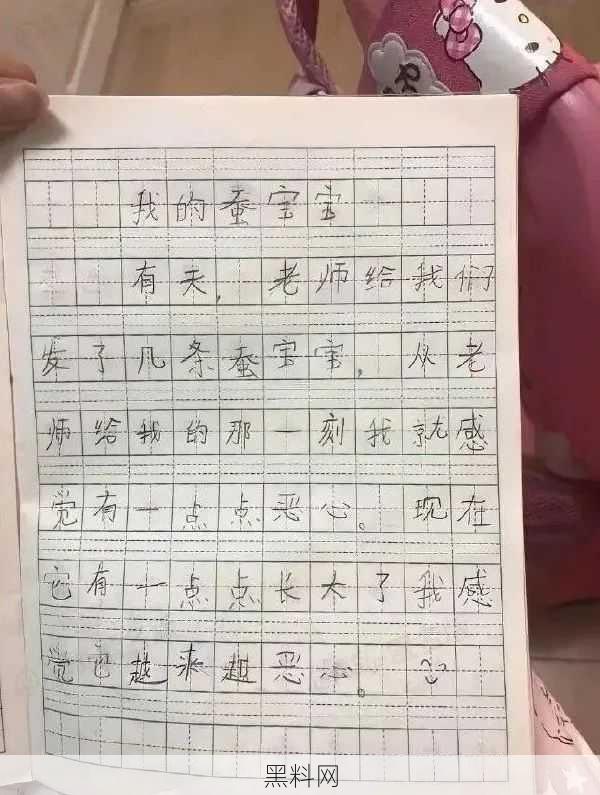 我的蚕宝宝
有天，老师给我们
发了几条蚕宝宝，从老
师给我的那一刻我就感
觉有一点点恶心。现在
它有一点点长大了我感
觉它越来越恶心。
黑料网